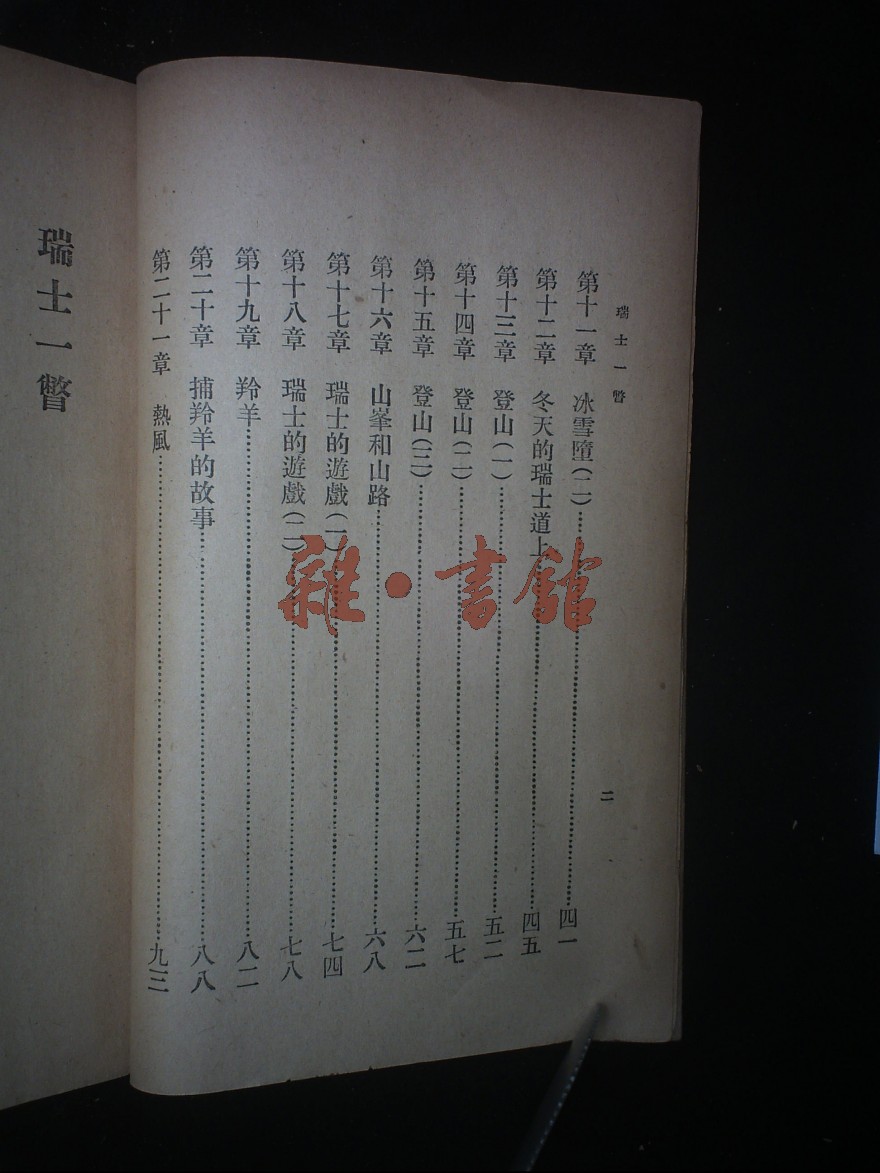 瑞士一瞥
二
第十一章 冰雪墮(二)……四一
第十二章 冬天的瑞士道上……四五
第十三章 登山(一)……五二
第十四章 登山(二)……五七
第十五章 登山(三)……六二
第十六章 山峯和山路……六八
第十七章 瑞士的遊戲(一)……七四
第十八章 瑞士的遊戲(二)……七八
第十九章 羚羊……八二
第二十章 捕羚羊的故事……八八
第二十一章 熱風……九三
瑞士一瞥
雜·書館